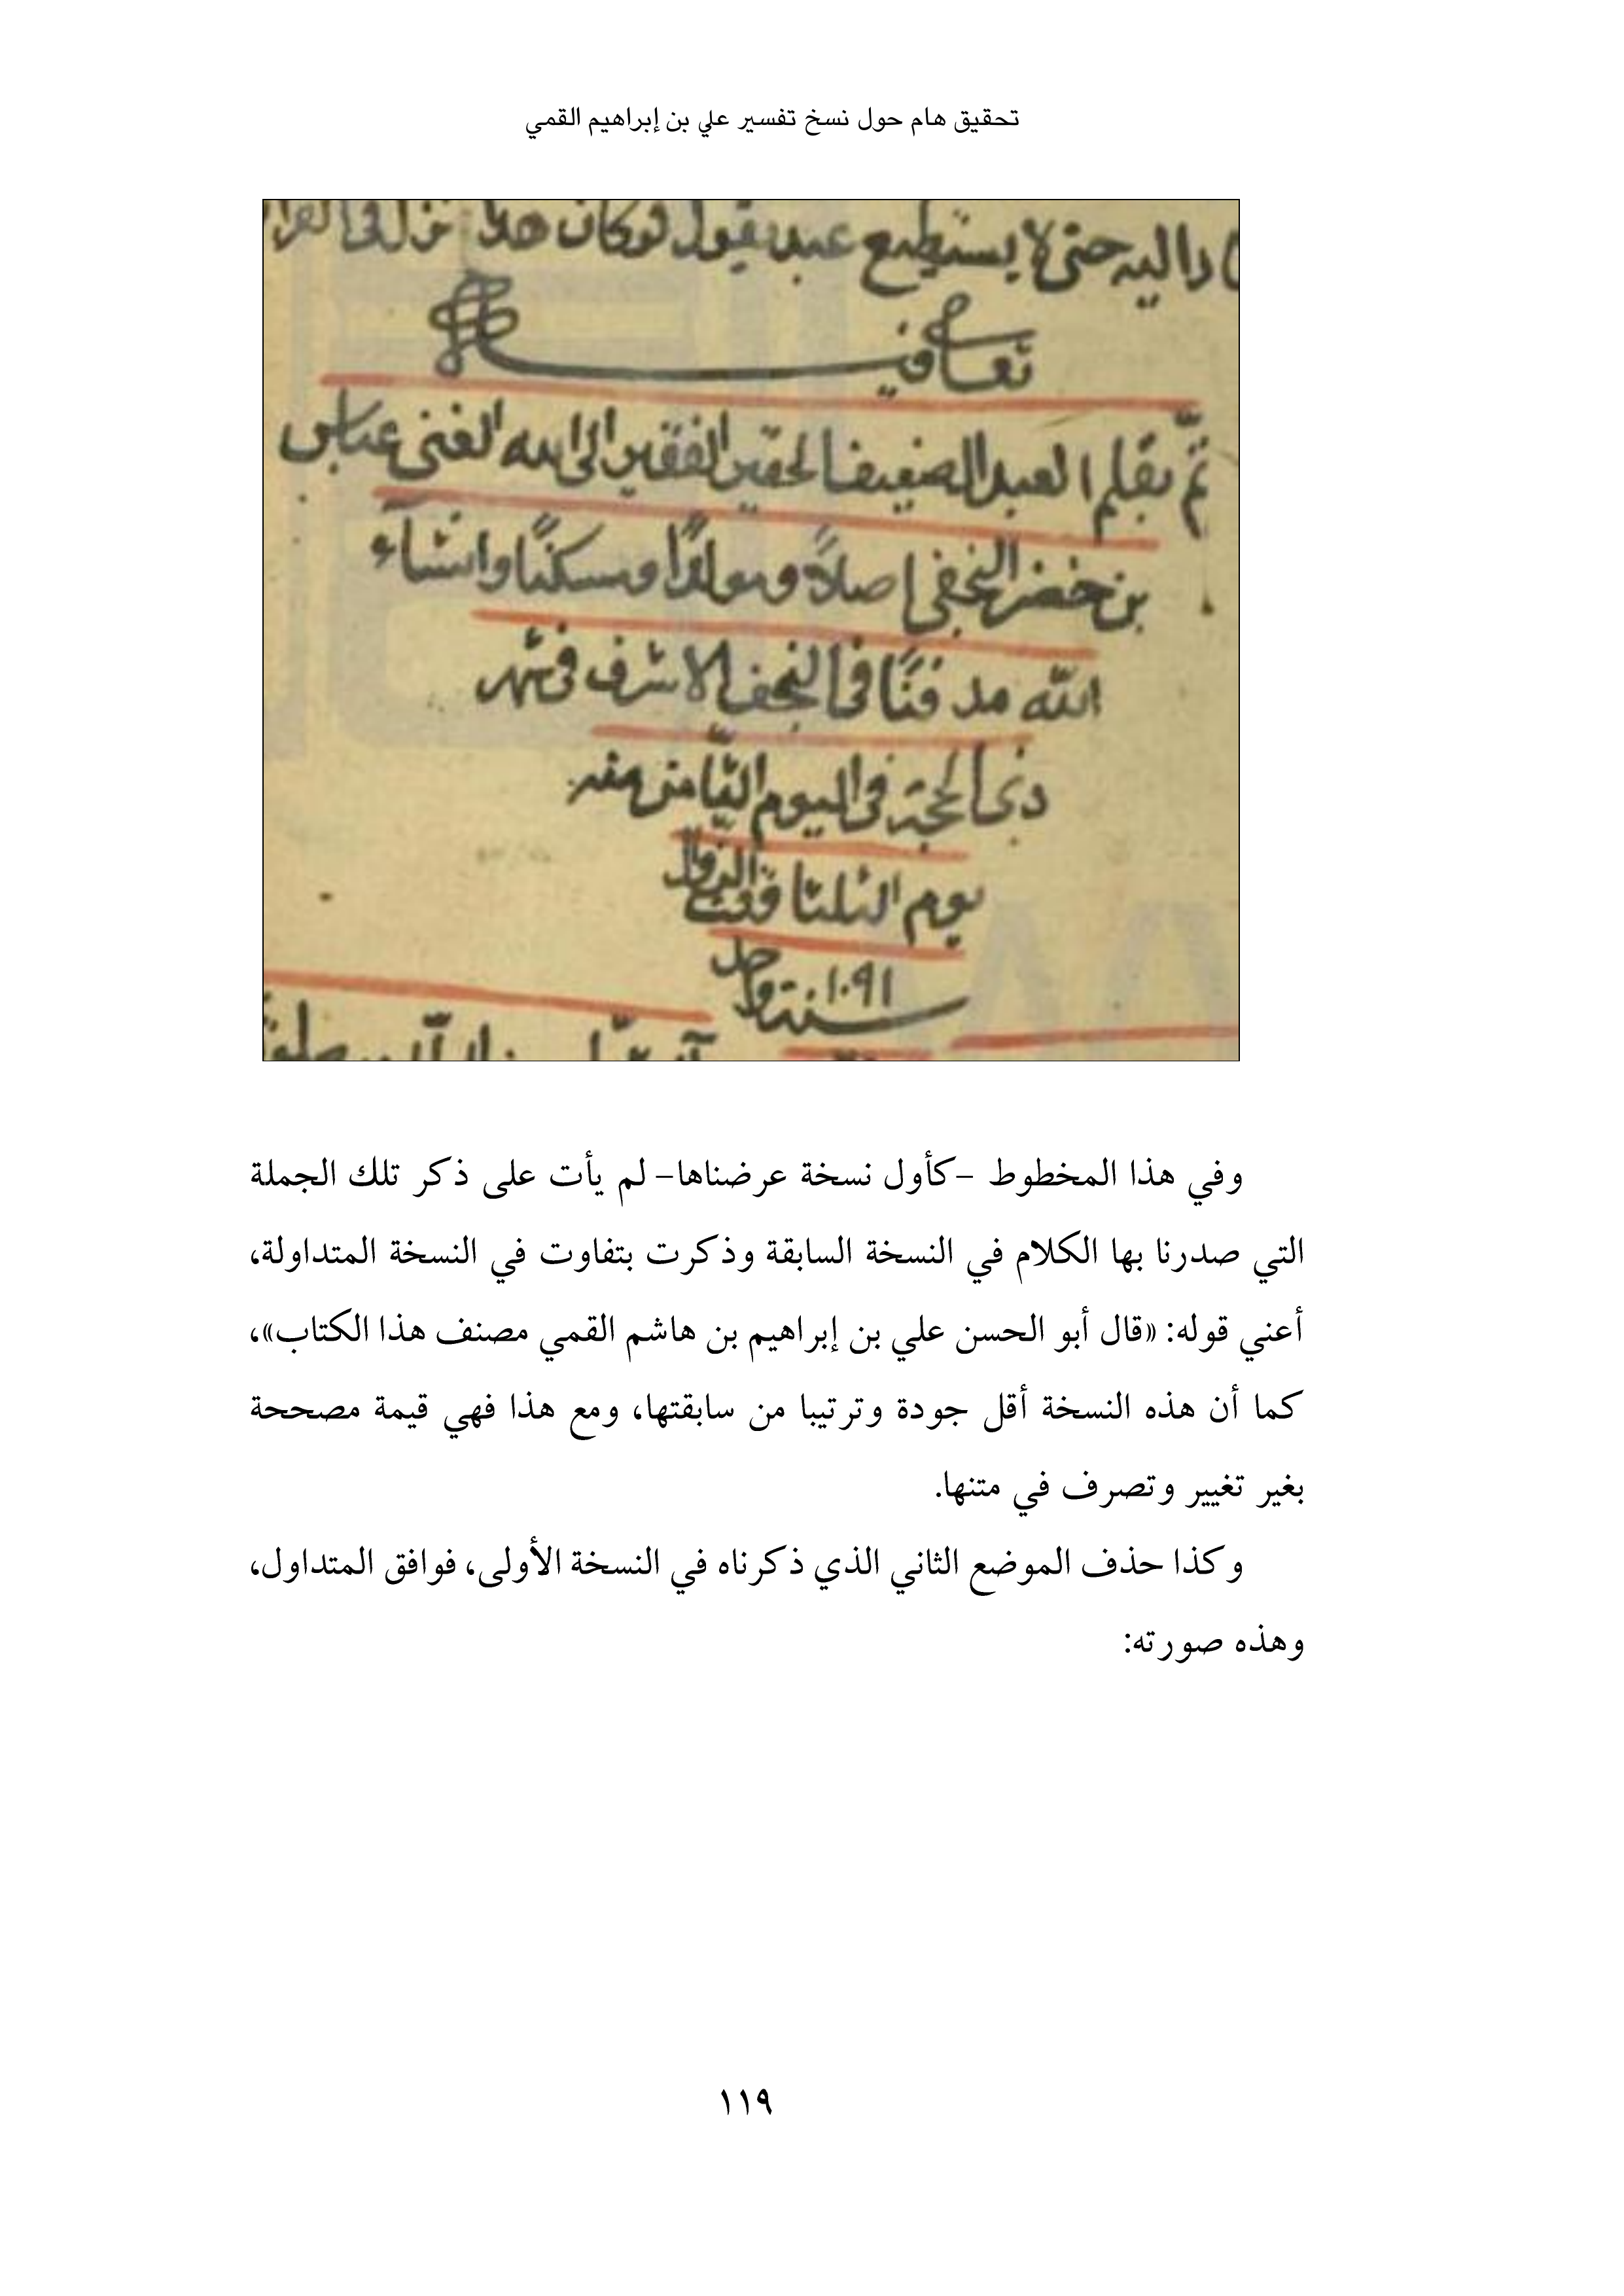 تحقيق هام حول نسخ تفسير علي بن إبراهيم القمي
اليه حتى لا يستطيع عبد يقول لو كان هذا نزل في القرا
تم بقلم العبد الضعيف الحقير الفقير الى الله الغنى عباس
بن خضر النجفي اصلاً ومولدًا ومسكنًا وانشاء
الله مدفنًا في النجف الاشرف في شهر
ذى الحجة في اليوم الثامن منه
يوم الثلثا الزوال
سنة ١٠٩١
وفي هذا المخطوط -كأول نسخة عرضناها- لم يأت على ذكر تلك الجملة
التي صدرنا بها الكلام في النسخة السابقة وذكرت بتفاوت في النسخة المتداولة،
أعني قوله: «قال أبو الحسن علي بن إبراهيم بن هاشم القمي مصنف هذا الكتاب»،
كما أن هذه النسخة أقل جودة وترتيبا من سابقتها، ومع هذا فهي قيمة مصححة
بغير تغيير وتصرف في متنها.
وكذا حذف الموضع الثاني الذي ذكرناه في النسخة الأولى، فوافق المتداول،
وهذه صورته:
١١٩